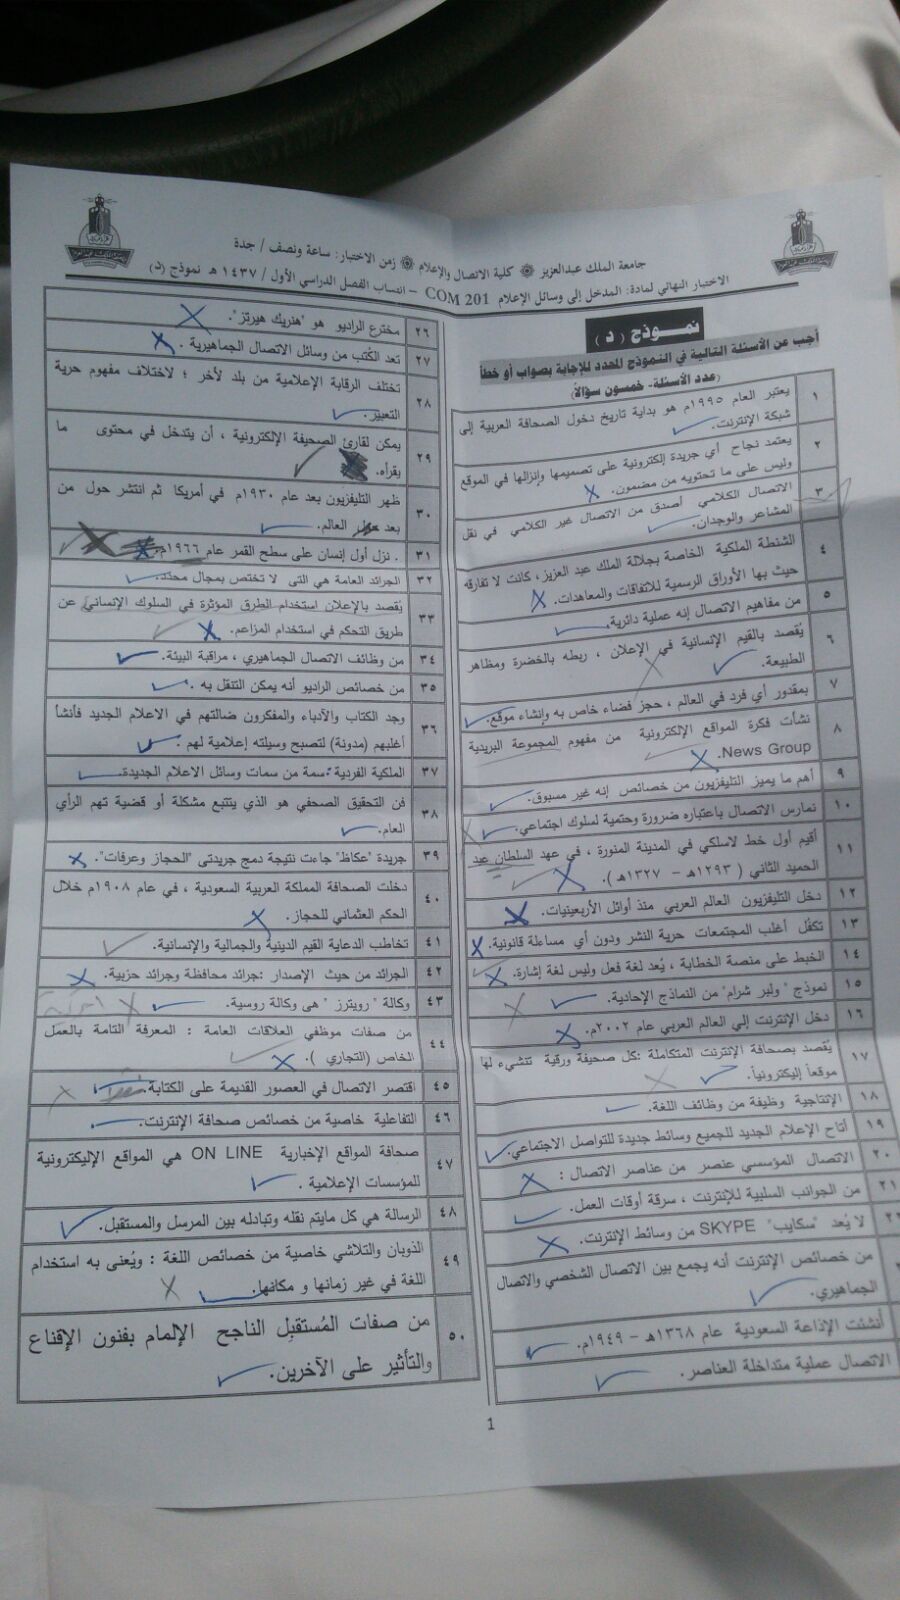 جامعة الملك عبدالعزيز ❁ كلية الاتصال والإعلام ❁ زمن الاختبار: ساعة ونصف / جدة
الاختبار النهائي لمادة: المدخل إلى وسائل الإعلام COM 201 – انتساب الفصل الدراسي الأول / ١٤٣٧ هـ نموذج (د)
نمـــوذج ( د )
أجب عن الأسئلة التالية في النموذج المحدد للإجابة بصواب أو خطأ
(عدد الأسئلة- خمسون سؤالاً)
١ يعتبر العام ١٩٩٥م هو بداية تاريخ دخول الصحافة العربية إلى
شبكة الإنترنت.
٢ يعتمد نجاح أي جريدة إلكترونية على تصميمها وإنزالها في الموقع
وليس على ما تحتويه من مضمون.
٣ الاتصال الكلامي أصدق من الاتصال غير الكلامي في نقل
المشاعر والوجدان.
٤ الشنطة الملكية الخاصة بجلالة الملك عبد العزيز، كانت لا تفارقه
حيث بها الأوراق الرسمية للاتفاقات والمعاهدات.
٥ من مفاهيم الاتصال إنه عملية دائرية.
٦ يُقصد بالقيم الإنسانية في الإعلان ، ربطه بالخضرة ومظاهر
الطبيعة.
٧ بمقدور أي فرد في العالم ، حجز فضاء خاص به وإنشاء موقع.
٨ نشأت فكرة المواقع الإلكترونية من مفهوم المجموعة البريدية
News Group.
٩ أهم ما يميز التليفزيون من خصائص إنه غير مسبوق.
١٠ نمارس الاتصال باعتباره ضرورة وحتمية لسلوك اجتماعي.
١١ أقيم أول خط لاسلكي في المدينة المنورة ، في عهد السلطان عبد
الحميد الثاني ( ١٢٩٣هـ – ١٣٢٧هـ ).
١٢ دخل التليفزيون العالم العربي منذ أوائل الأربعينيات.
١٣ تكفُل أغلب المجتمعات حرية النشر ودون أي مساءلة قانونية.
١٤ الخبط على منصة الخطابة ، يُعد لغة فعل وليس لغة إشارة.
١٥ نموذج "ولبر شرام" من النماذج الإحادية.
١٦ دخل الإنترنت إلي العالم العربي عام ٢٠٠٢م.
١٧ يُقصد بصحافة الإنترنت المتكاملة :كل صحيفة ورقية تنشيء لها
موقعاً إليكترونياً.
١٨ الإنتاجية وظيفة من وظائف اللغة.
١٩ أتاح الإعلام الجديد للجميع وسائط جديدة للتواصل الاجتماعي.
٢٠ الاتصال المؤسسي عنصر من عناصر الاتصال :
٢١ من الجوانب السلبية للإنترنت ، سرقة أوقات العمل.
٢٢ لا يُعد "سكايب" SKYPE من وسائط الإنترنت.
من خصائص الإنترنت أنه يجمع بين الاتصال الشخصي والاتصال
الجماهيري.
أنشئت الإذاعة السعودية عام ١٣٦٨هـ – ١٩٤٩م.
الاتصال عملية متداخلة العناصر.
٢٦ مخترع الراديو هو "هنريك هيرتز".
٢٧ تعد الكُتب من وسائل الاتصال الجماهيرية .
٢٨ تختلف الرقابة الإعلامية من بلد لأخر ؛ لاختلاف مفهوم حرية
التعبير.
٢٩ يمكن لقارئ الصحيفة الإلكترونية ، أن يتدخل في محتوى ما
يقرأه.
٣٠ ظهر التليفزيون بعد عام ١٩٣٠م في أمريكا ثم انتشر حول من
بعد العالم.
٣١ . نزل أول إنسان على سطح القمر عام ١٩٦٦م.
٣٢ الجرائد العامة هي التى لا تختص بمجال محدد.
٣٣ يُقصد بالإعلان استخدام الطرق المؤثرة في السلوك الإنساني عن
طريق التحكم في استخدام المزاعم.
٣٤ من وظائف الاتصال الجماهيري ، مراقبة البيئة.
٣٥ من خصائص الراديو أنه يمكن التنقل به .
٣٦ وجد الكتاب والأدباء والمفكرون ضالتهم في الاعلام الجديد فأنشأ
أغلبهم (مدونة) لتصبح وسيلته إعلامية لهم .
٣٧ الملكية الفردية :سمة من سمات وسائل الاعلام الجديدة.
٣٨ فن التحقيق الصحفي هو الذي يتتبع مشكلة أو قضية تهم الرأي
العام.
٣٩ جريدة "عكاظ" جاءت نتيجة دمج جريدتي "الحجاز وعرفات".
٤٠ دخلت الصحافة المملكة العربية السعودية ، في عام ١٩٠٨م خلال
الحكم العثماني للحجاز.
٤١ تخاطب الدعاية القيم الدينية والجمالية والإنسانية.
٤٢ الجرائد من حيث الإصدار :جرائد محافظة وجرائد حزبية.
٤٣ وكالة "رويترز" هى وكالة روسية.
٤٤ من صفات موظفي العلاقات العامة : المعرفة التامة بالعمل
الخاص (التجاري ).
٤٥ اقتصر الاتصال في العصور القديمة على الكتابة.
٤٦ التفاعلية خاصية من خصائص صحافة الإنترنت.
٤٧ صحافة المواقع الإخبارية ON LINE هي المواقع الإليكترونية
للمؤسسات الإعلامية .
٤٨ الرسالة هي كل مايتم نقله وتبادله بين المرسل والمستقبل.
٤٩ الذوبان والتلاشي خاصية من خصائص اللغة : ويُعنى به استخدام
اللغة في غير زمانها و مكانها.
٥٠ من صفات المُستقبِل الناجح الإلمام بفنون الإقناع
والتأثير على الآخرين.
1